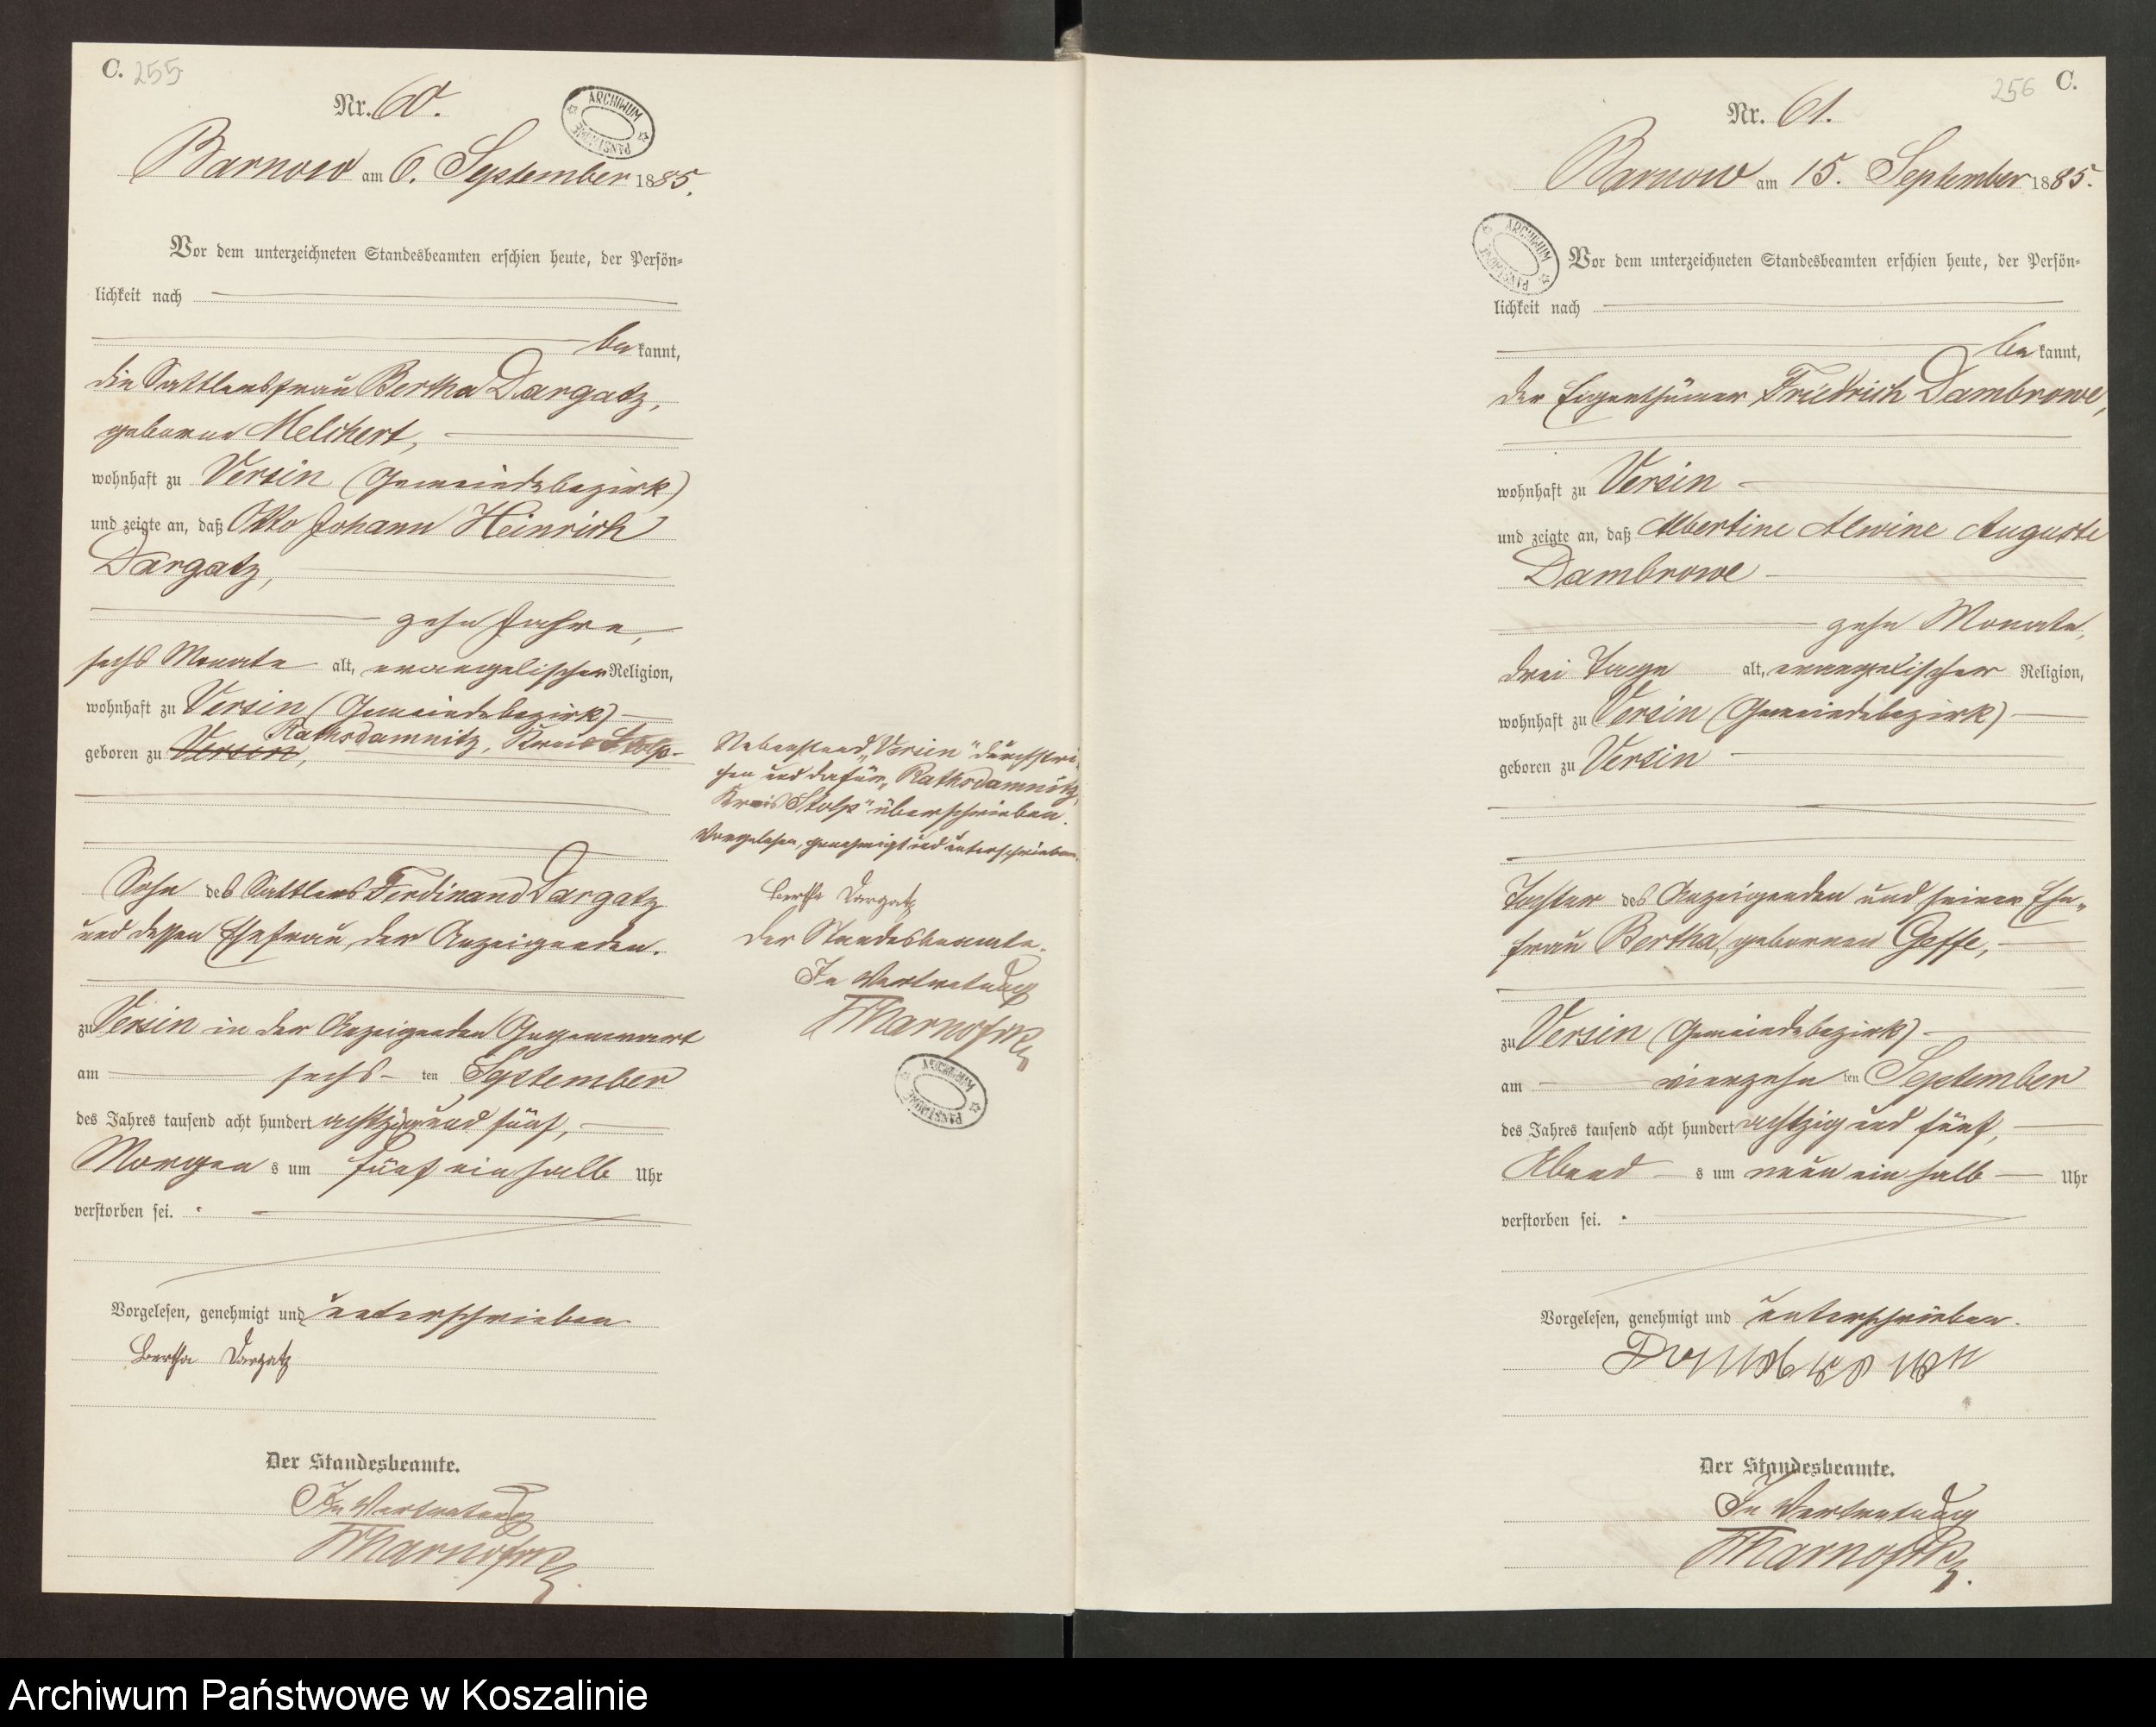 C. 255
Nr. 60.
ARCHIWUM PAŃSTWOWE
Barnow am 6. September 1885.
Vor dem unterzeichneten Standesbeamten erschien heute, der Persön-
lichkeit nach
be kannt,
die Sattlersfrau Bertha Dargatz,
geborne Melchert,
wohnhaft zu Versin (Gemeindebezirk)
und zeigte an, daß Otto Johann Heinrich
Dargatz,
zehn Jahre,
sechs Monate alt, evangelischer Religion,
wohnhaft zu Versin (Gemeindebezirk)
Rathsdamnitz, Kreis Stolp
geboren zu Versin,
Sohn des Sattlers Ferdinand Dargatz
und dessen Ehefrau, der Anzeigenden.
zu Versin in der Anzeigenden Gegenwart
am sechs ten September
des Jahres tausend acht hundert achtzig und fünf,
Morgen s um fünf ein halb Uhr
verstorben sei.
Vorgelesen, genehmigt und unterschrieben
Bertha Dargatz
Der Standesbeamte.
In Vertretung
Nebenstehend „Versin" durchstri-
chen und dafür „Rathsdamnitz,
Kreis Stolp" überschrieben.
Vorgelesen, genehmigt und unterschrieben.
Bertha Dargatz
Der Standesbeamte.
In Vertretung
ARCHIWUM PAŃSTWOWE
256 C.
Nr. 61.
Barnow am 15. September 1885.
ARCHIWUM PAŃSTWOWE
Vor dem unterzeichneten Standesbeamten erschien heute, der Persön-
lichkeit nach
be kannt,
der Eigenthümer Friedrich Dambrowe,
wohnhaft zu Versin
und zeigte an, daß Albertine Alwine Auguste
Dambrowe
zehn Monate,
drei Tage alt, evangelischer Religion,
wohnhaft zu Versin (Gemeindebezirk)
geboren zu Versin
Tochter des Anzeigenden und seiner Ehe-
frau Bertha, gebornen Geffe,
zu Versin (Gemeindebezirk)
am vierzehn ten September
des Jahres tausend acht hundert achtzig und fünf,
Abend s um neun ein halb Uhr
verstorben sei.
Vorgelesen, genehmigt und unterschrieben.
Der Standesbeamte.
In Vertretung
Archiwum Państwowe w Koszalinie